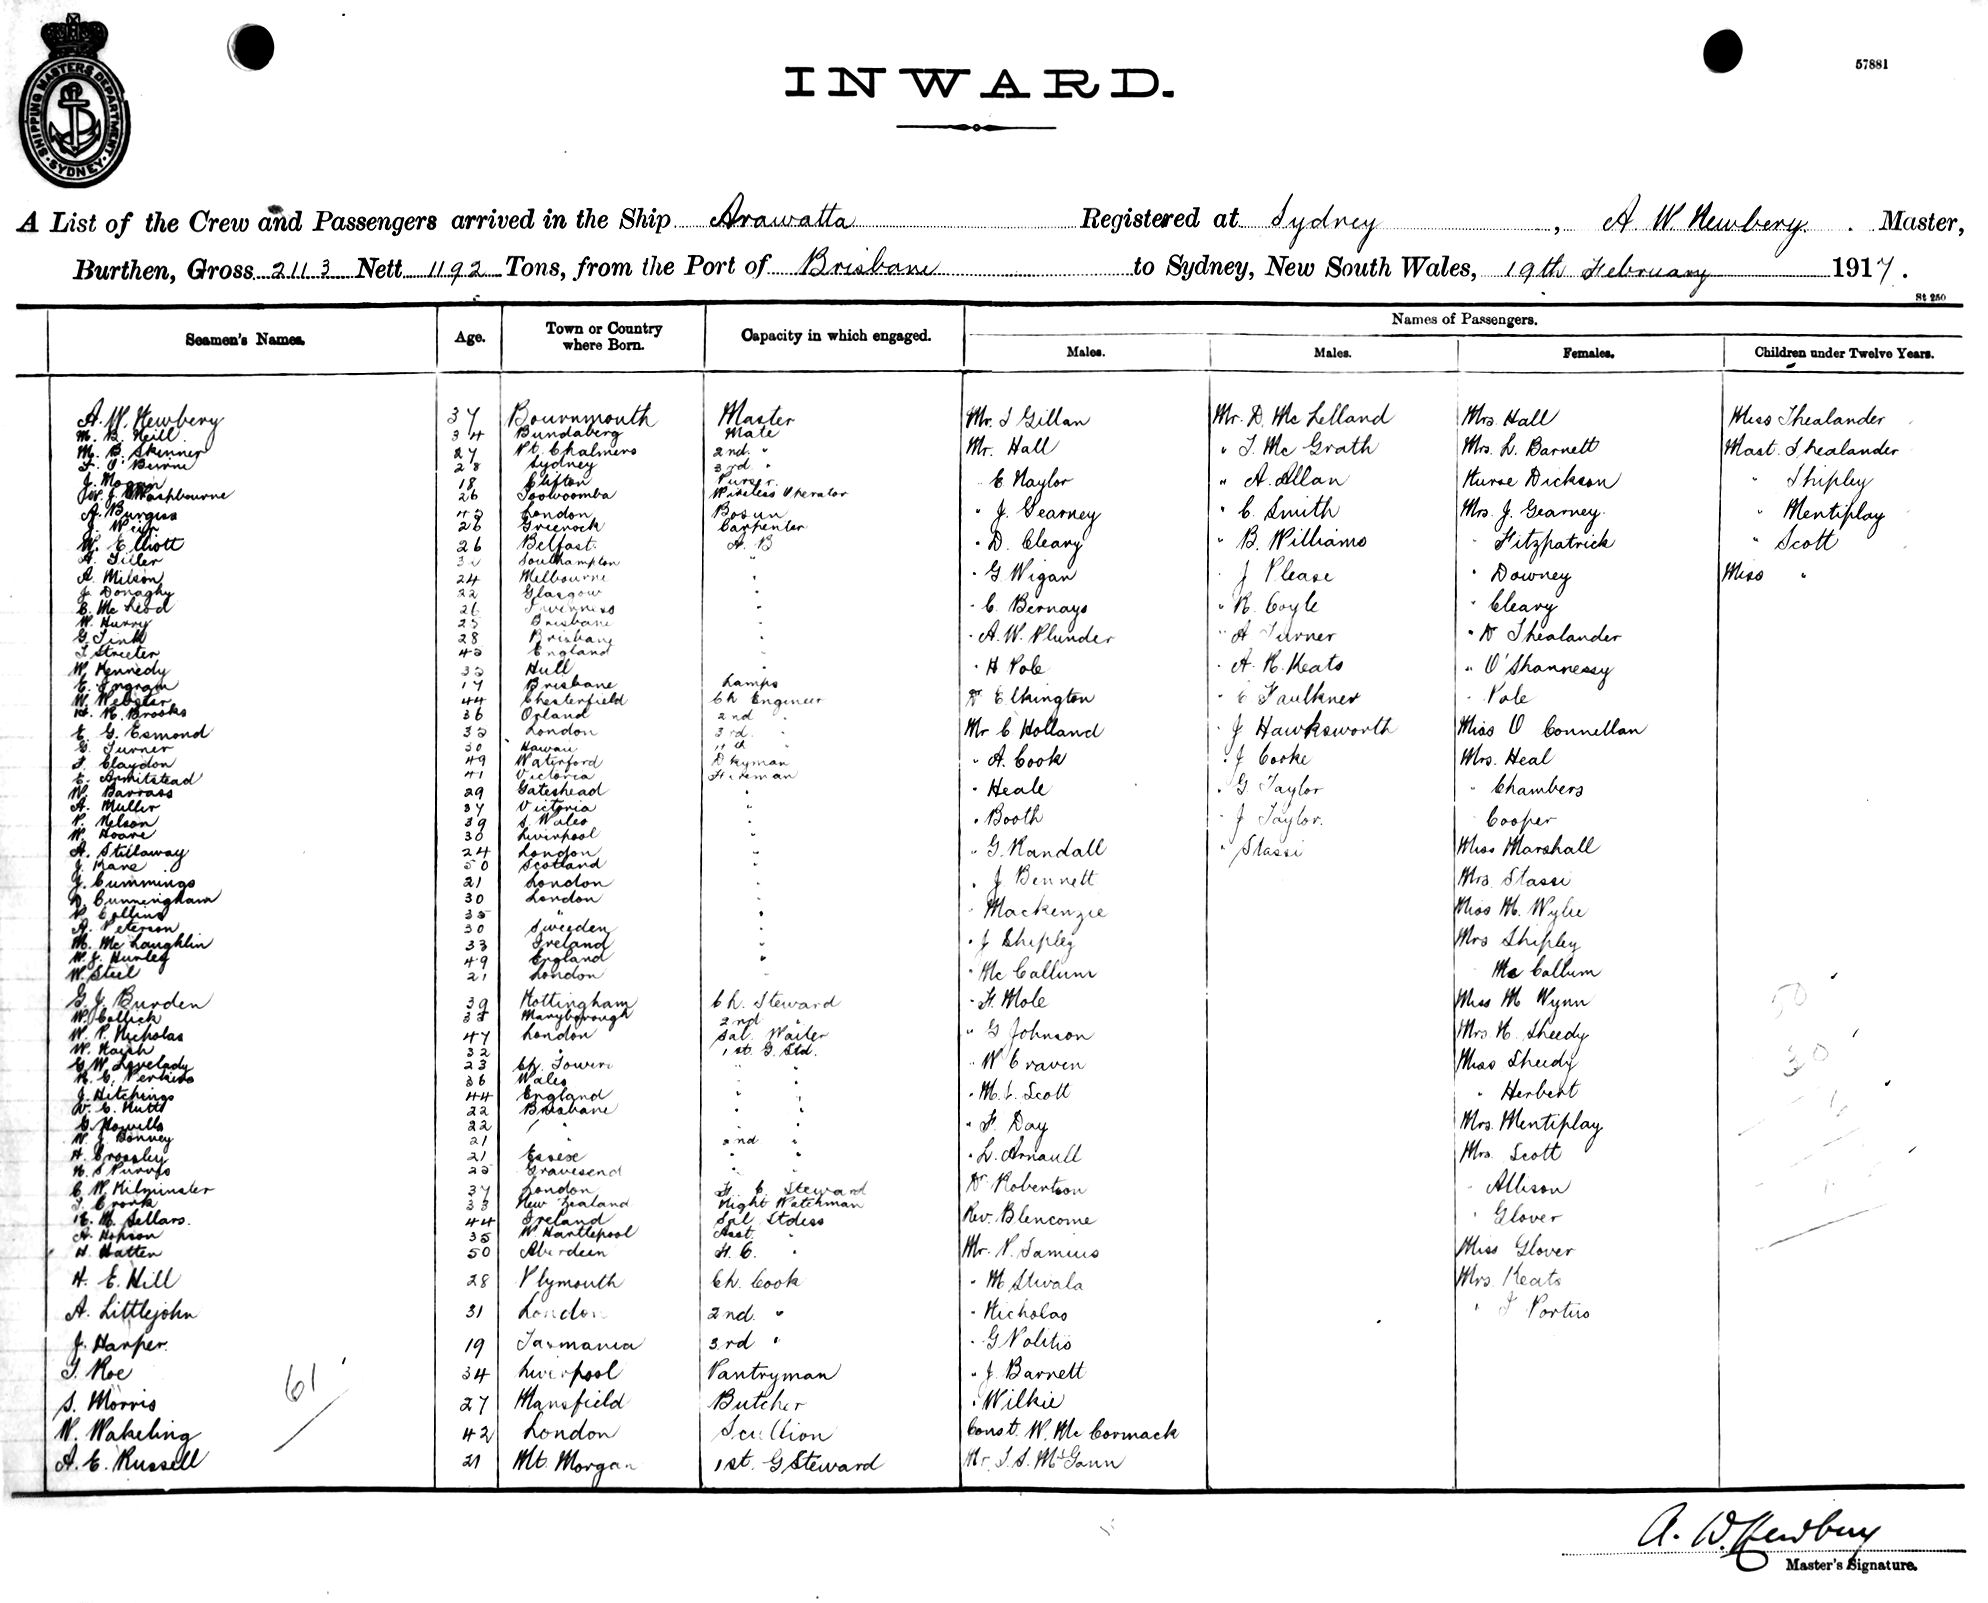 SHIPPING MASTERS DEPARTMENT. SYDNEY
57881
INWARD.
A List of the Crew and Passengers arrived in the Ship Arawatta Registered at Sydney, A W Newbery. Master,
Burthen, Gross 2113 Nett 1192 Tons, from the Port of Brisbane to Sydney, New South Wales, 19th February 1917.
St 250
Names of Passengers.
Seamen's Names. Age. Town or Country where Born. Capacity in which engaged. Males. Males. Females. Children under Twelve Years.
A. W. Newbery 37 Bournmouth Master
M. B. Neill 34 Bundaberg Mate
M. B. Skinner 27 Pt. Chalmers 2nd. "
F. O'Beirne 28 Sydney 3rd "
J. Morgan 18 Clifton Purser
J. Washbourne 26 Toowoomba Wireless Operator
A. Burgiss 42 London Bosun
J. Weir 26 Greenock Carpenter
W. Elliott 26 Belfast A. B
A. Tiller Southampton "
A. Milson 24 Melbourne "
J. Donaghy 22 Glasgow "
C. McLeod 26 Inverness "
W. Hurry 25 Brisbane "
G. Tink 28 Brisbane "
T. Streeter 42 England "
W. Kennedy 32 Hull "
E. Ingram 17 Brisbane Lamps
W. Webster 44 Chesterfield Ch Engineer
H. R. Brooks 36 Orland 2nd "
E. G. Esmond 32 London 3rd. "
G. Turner 30 Hawaii 4th "
F. Claydon 49 Waterford Dkyman
E. Armitstead 41 Victoria Fireman
W. Barrass 29 Gateshead "
A. Muller 37 Victoria "
P. Nelson 39 S. Wales "
W. Hoare 30 Liverpool "
A. Stillaway 24 London "
J. Kane 50 Scotland "
J. Cummings 21 London "
D. Cunningham 30 London "
P. Collins 35 " "
A. Peterson 30 Sweeden "
M. McLaughlin 33 Ireland "
W. J. Hurley 49 England "
W. Steel 21 London "
G. J. Burden 39 Nottingham Ch. Steward
W. Collick 33 Maryborough 2nd "
W. P. Nicholas 47 London Sal. Waiter
W. Naish 32 " 1st. G. Std.
C. W. Lovelady 23 Ch. Towers " "
R. C. Perkins 36 Wales " "
J. Hitchings 44 England " "
W. C. Nutt 22 Brisbane " "
C. Howells 22 " " "
W. J. Bonney 21 " 2nd "
A. Crossley 21 Essex " "
H. S. Purvis 22 Gravesend " "
C. W. Kilminster 37 London F. C. Steward
T. Cronk 33 New Zealand Night Watchman
E. M. Sellars. 44 Ireland Sal. Stdess
A. Hobson 35 W. Hartlepool Asst. "
H. Hatten 50 Aberdeen F. C. "
H. E. Hill 28 Plymouth Ch. Cook
A. Littlejohn 31 London 2nd. "
J. Harper. 19 Tasmania 3rd "
T. Roe 34 Liverpool Pantryman
S. Morris 27 Mansfield Butcher
W. Wakeling 42 London Scullion
A. E. Russell 21 Mt. Morgan 1st. G Steward
61
Mr. J Gillan
Mr. Hall
E Naylor
" J. Gearney
" D. Cleary
" G Wigan
" C. Bernays
" A. W. Plunder
" H Pole
Dr. Elkington
Mr C Holland
" A. Cook
" Heale
" Booth
" G. Randall
" J Bennett
" Mackenzie
" J Shipley
" McCallum
" F. Mole
" G Johnson
" W Craven
" M. J. Scott
" F. Day
" L. Arnault
Dr Robertson
Rev. Blencome
Mr. P. Samius
" M Stivala
" Nicholas
" G Politis
" J. Barnett
" Wilkie
Const. W. McCormack
Mr. J. S. McGann
Mr. D. McLelland
" T. McGrath
" A. Allan
" C. Smith
" B. Williams
" J Please
" R. Coyle
" A Turner
" A. R. Keats
" E Faulkner
" J Hawksworth
" J Cooke
" G Taylor
" J Taylor.
" Stassi
Mrs. Hall
Mrs. L. Barnett
Nurse Dickson
Mrs. J. Gearney.
" Fitzpatrick
" Downey
" Cleary
" D Thealander
" O'Shannessy
" Pole
Miss O Connellan
Mrs. Heal
" Chambers
Cooper
Miss Marshall
Mrs. Stassi
Miss M. Wylie
Mrs Shipley
McCallum
Miss M Wynn
Mrs. H. Sheedy
Miss Sheedy
" Herbert
Mrs. Mentiplay
Mrs. Scott
" Allison
" Glover
Miss Glover
Mrs. Keats
" J Portus
Miss Thealander
Mast. Thealander
" Shipley
" Mentiplay
" Scott
Miss "
50
30
A. W. Newbery
Master's Signature.